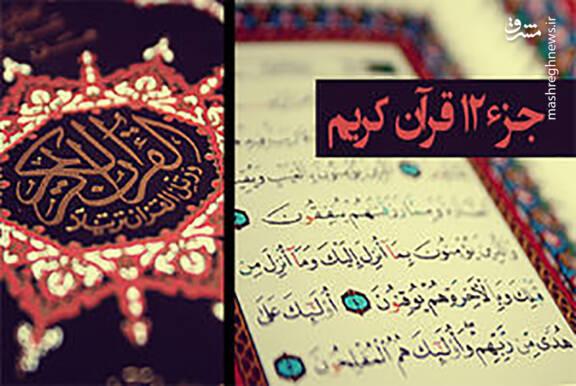 مشرق
mashreghnews.ir
جزء ۱۲ قرآن کریم
القرآن الکریم
ورتل القرآن ترتیلا
الصلوة ومما رزقناهم ینفقون
والذین یؤمنون بما أنزل إلیك وما أنزل من
قبلك وبالآخرة هم یوقنون ۴ أولئك علی
هدی من ربهم وأولئك هم المفلحون